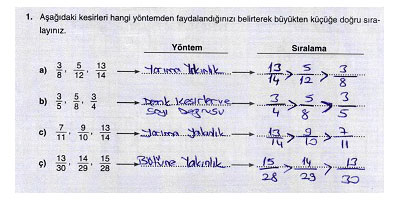 1. Aşağıdaki kesirleri hangi yöntemden faydalandığınızı belirterek büyükten küçüğe doğru sıra-
layınız.
Yöntem Sıralama
a) 3/8, 5/12, 13/14 Yarıma Yakınlık 13/14 > 5/12 > 3/8
b) 3/5, 5/8, 3/4 Denk kesirler ve Sayı Doğrusu 3/4 > 5/8 > 3/5
c) 7/11, 9/10, 13/14 Yarıma Yakınlık 13/14 > 9/10 > 7/11
ç) 13/30, 14/29, 15/28 Bütüne Yakınlık 15/28 > 14/29 > 13/30